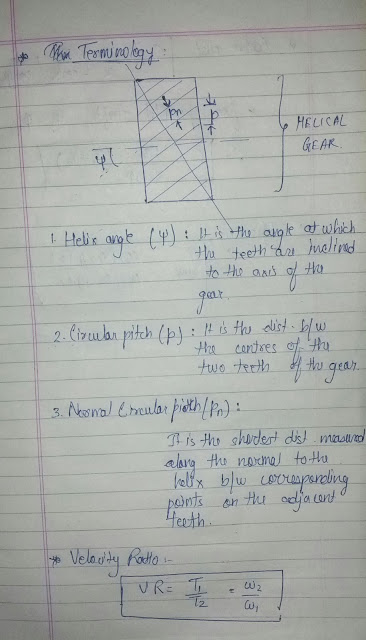 * Terminology :
pn
p
ψ
HELICAL
GEAR.
1. Helix angle (ψ) : It is the angle at which
the teeth are inclined
to the axis of the
gear.
2. Circular pitch (p) : It is the dist. b/w
the centres of the
two teeth of the gear.
3. Normal Circular pitch (pn) :
It is the shortest dist. measured
along the normal to the
helix b/w corresponding
points on the adjacent
teeth.
* Velocity Ratio :-
VR = T1/T2 = ω2/ω1